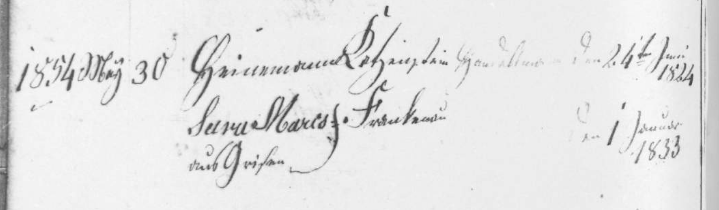 1854 May 30 Heinemann Katzenstein Handelsmann den 24ten Juni
1824
Sara Marcs Frankenau den 1 Januar
1833
aus Grifen